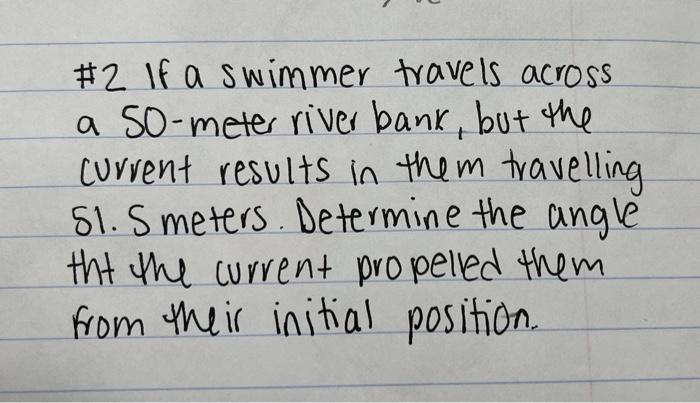 #2 If a swimmer travels across
a 50-meter river bank, but the
current results in them travelling
51.5 meters. Determine the angle
tht the current propelled them
from their initial position.